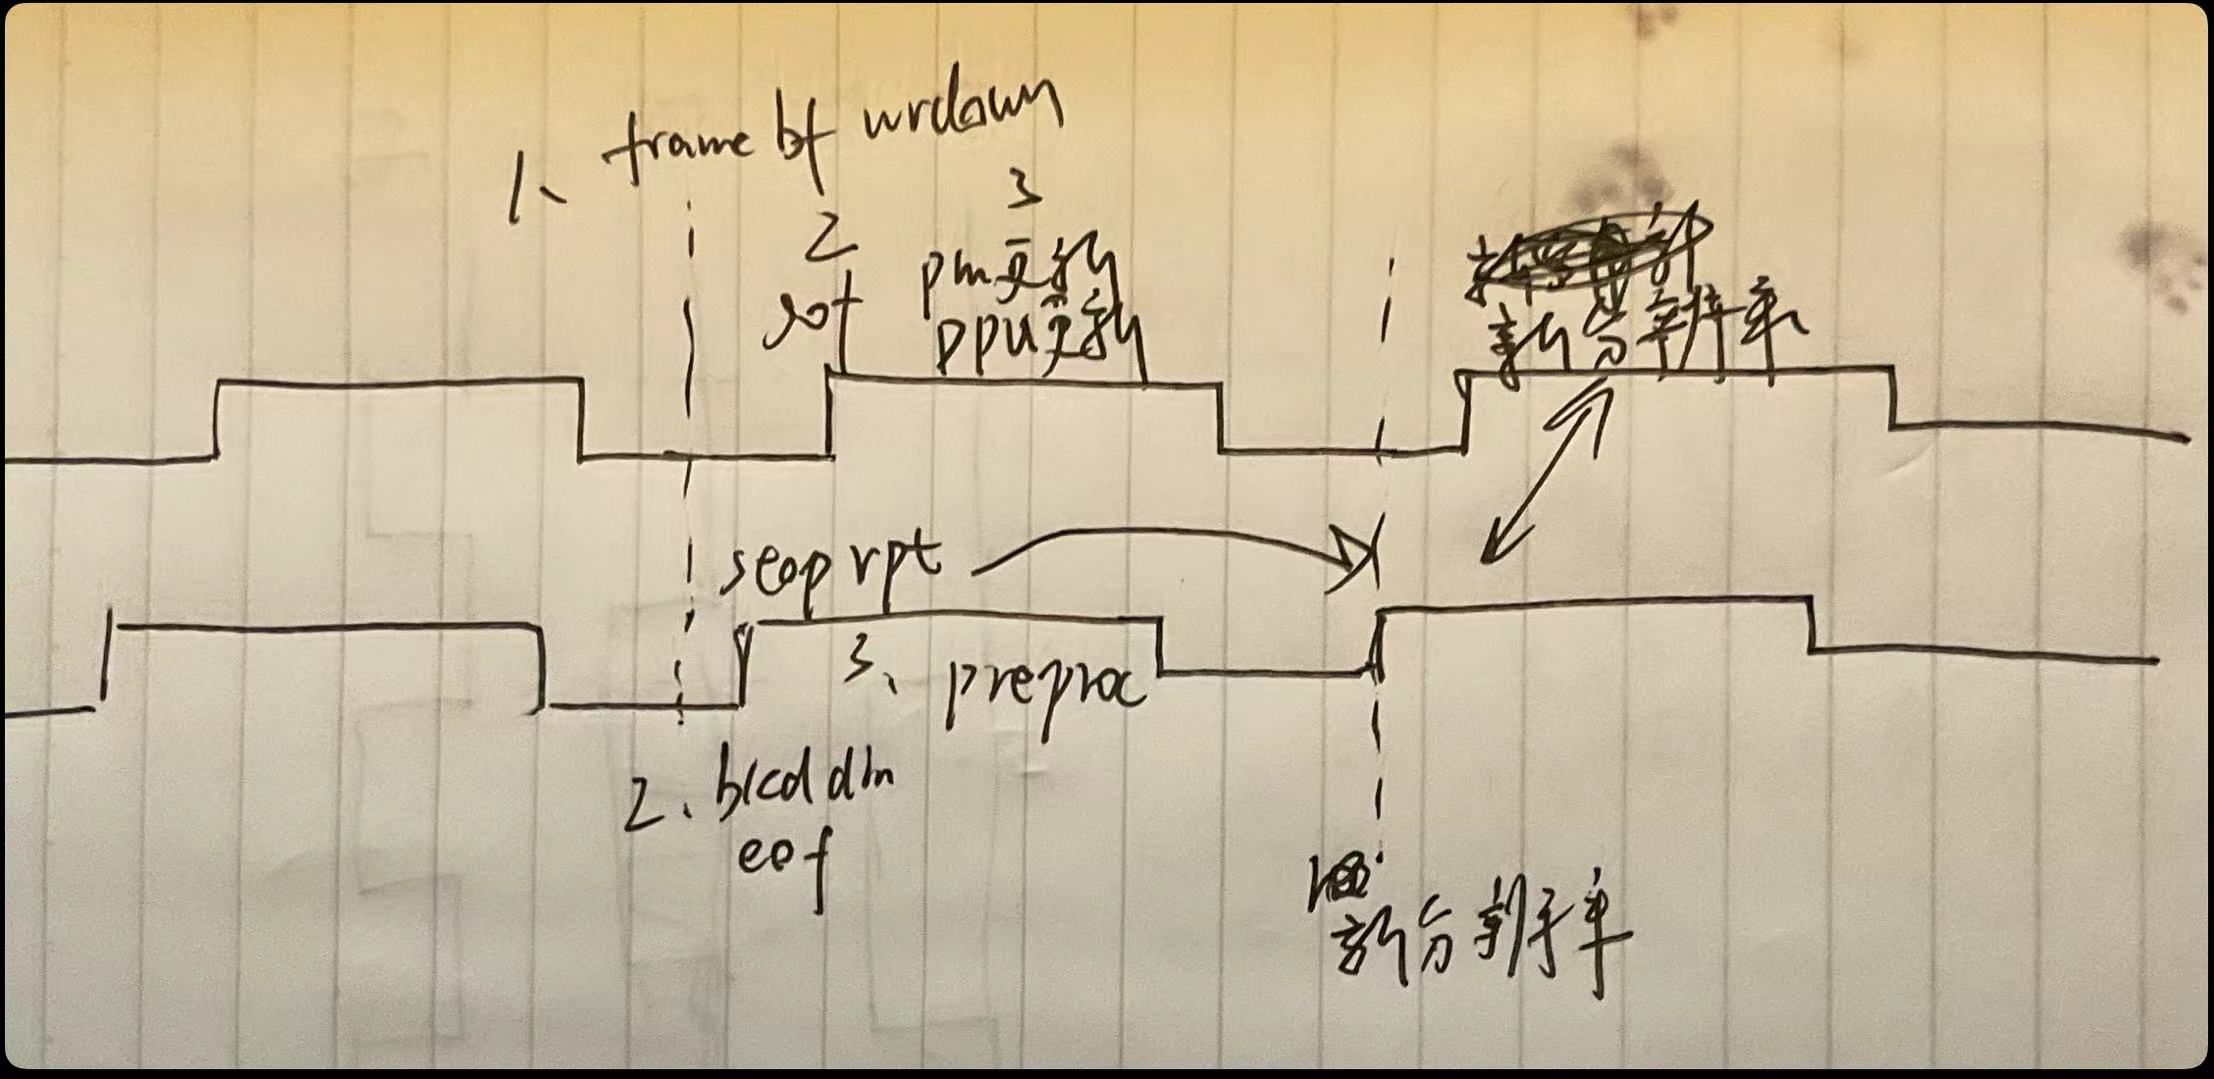 1、 frame bf wrdown
2
sof
3
pm更新
ppu更新
新分辨率
seop rpt
3、preproc
2、blcd dln
eof
新分辨率